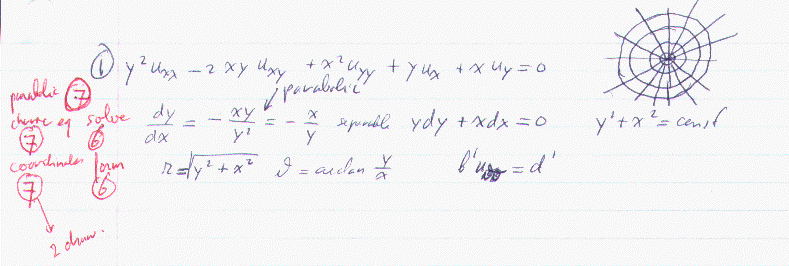 ① y²u_xx − 2xy u_xy + x²u_yy + y u_x + x u_y = 0
parabolic ⑦
parabolic
solve
⑦ ⑥
dy/dx = − xy/y² = − x/y separable ydy + xdx = 0 y² + x² = const
coordinates form
⑦ ⑥
r = √(y² + x²) ϑ = arctan y/x = d'
2 draw.